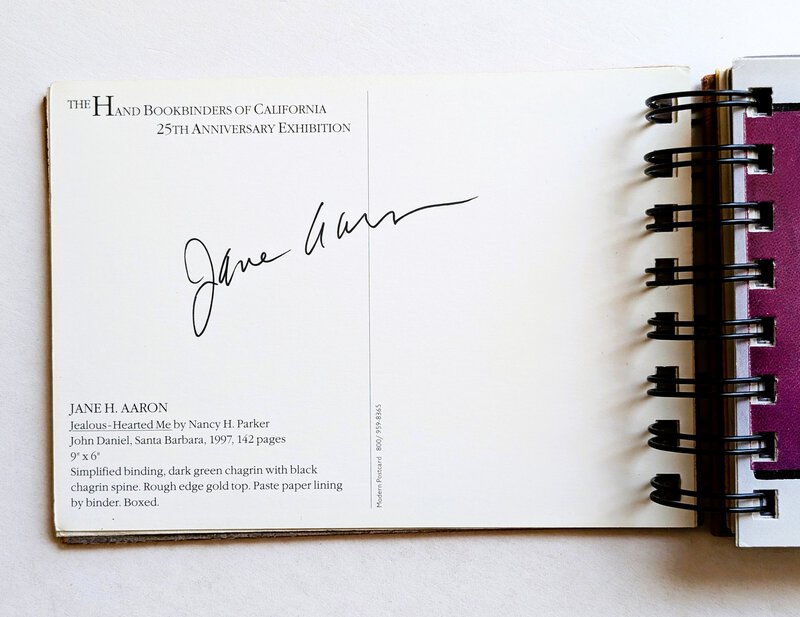 THE HAND BOOKBINDERS OF CALIFORNIA
25TH ANNIVERSARY EXHIBITION
Jane Aaron
JANE H. AARON
Jealous-Hearted Me by Nancy H. Parker
John Daniel, Santa Barbara, 1997, 142 pages
9" x 6"
Simplified binding, dark green chagrin with black
chagrin spine. Rough edge gold top. Paste paper lining
by binder. Boxed.
Modern Postcard 800/959-8365